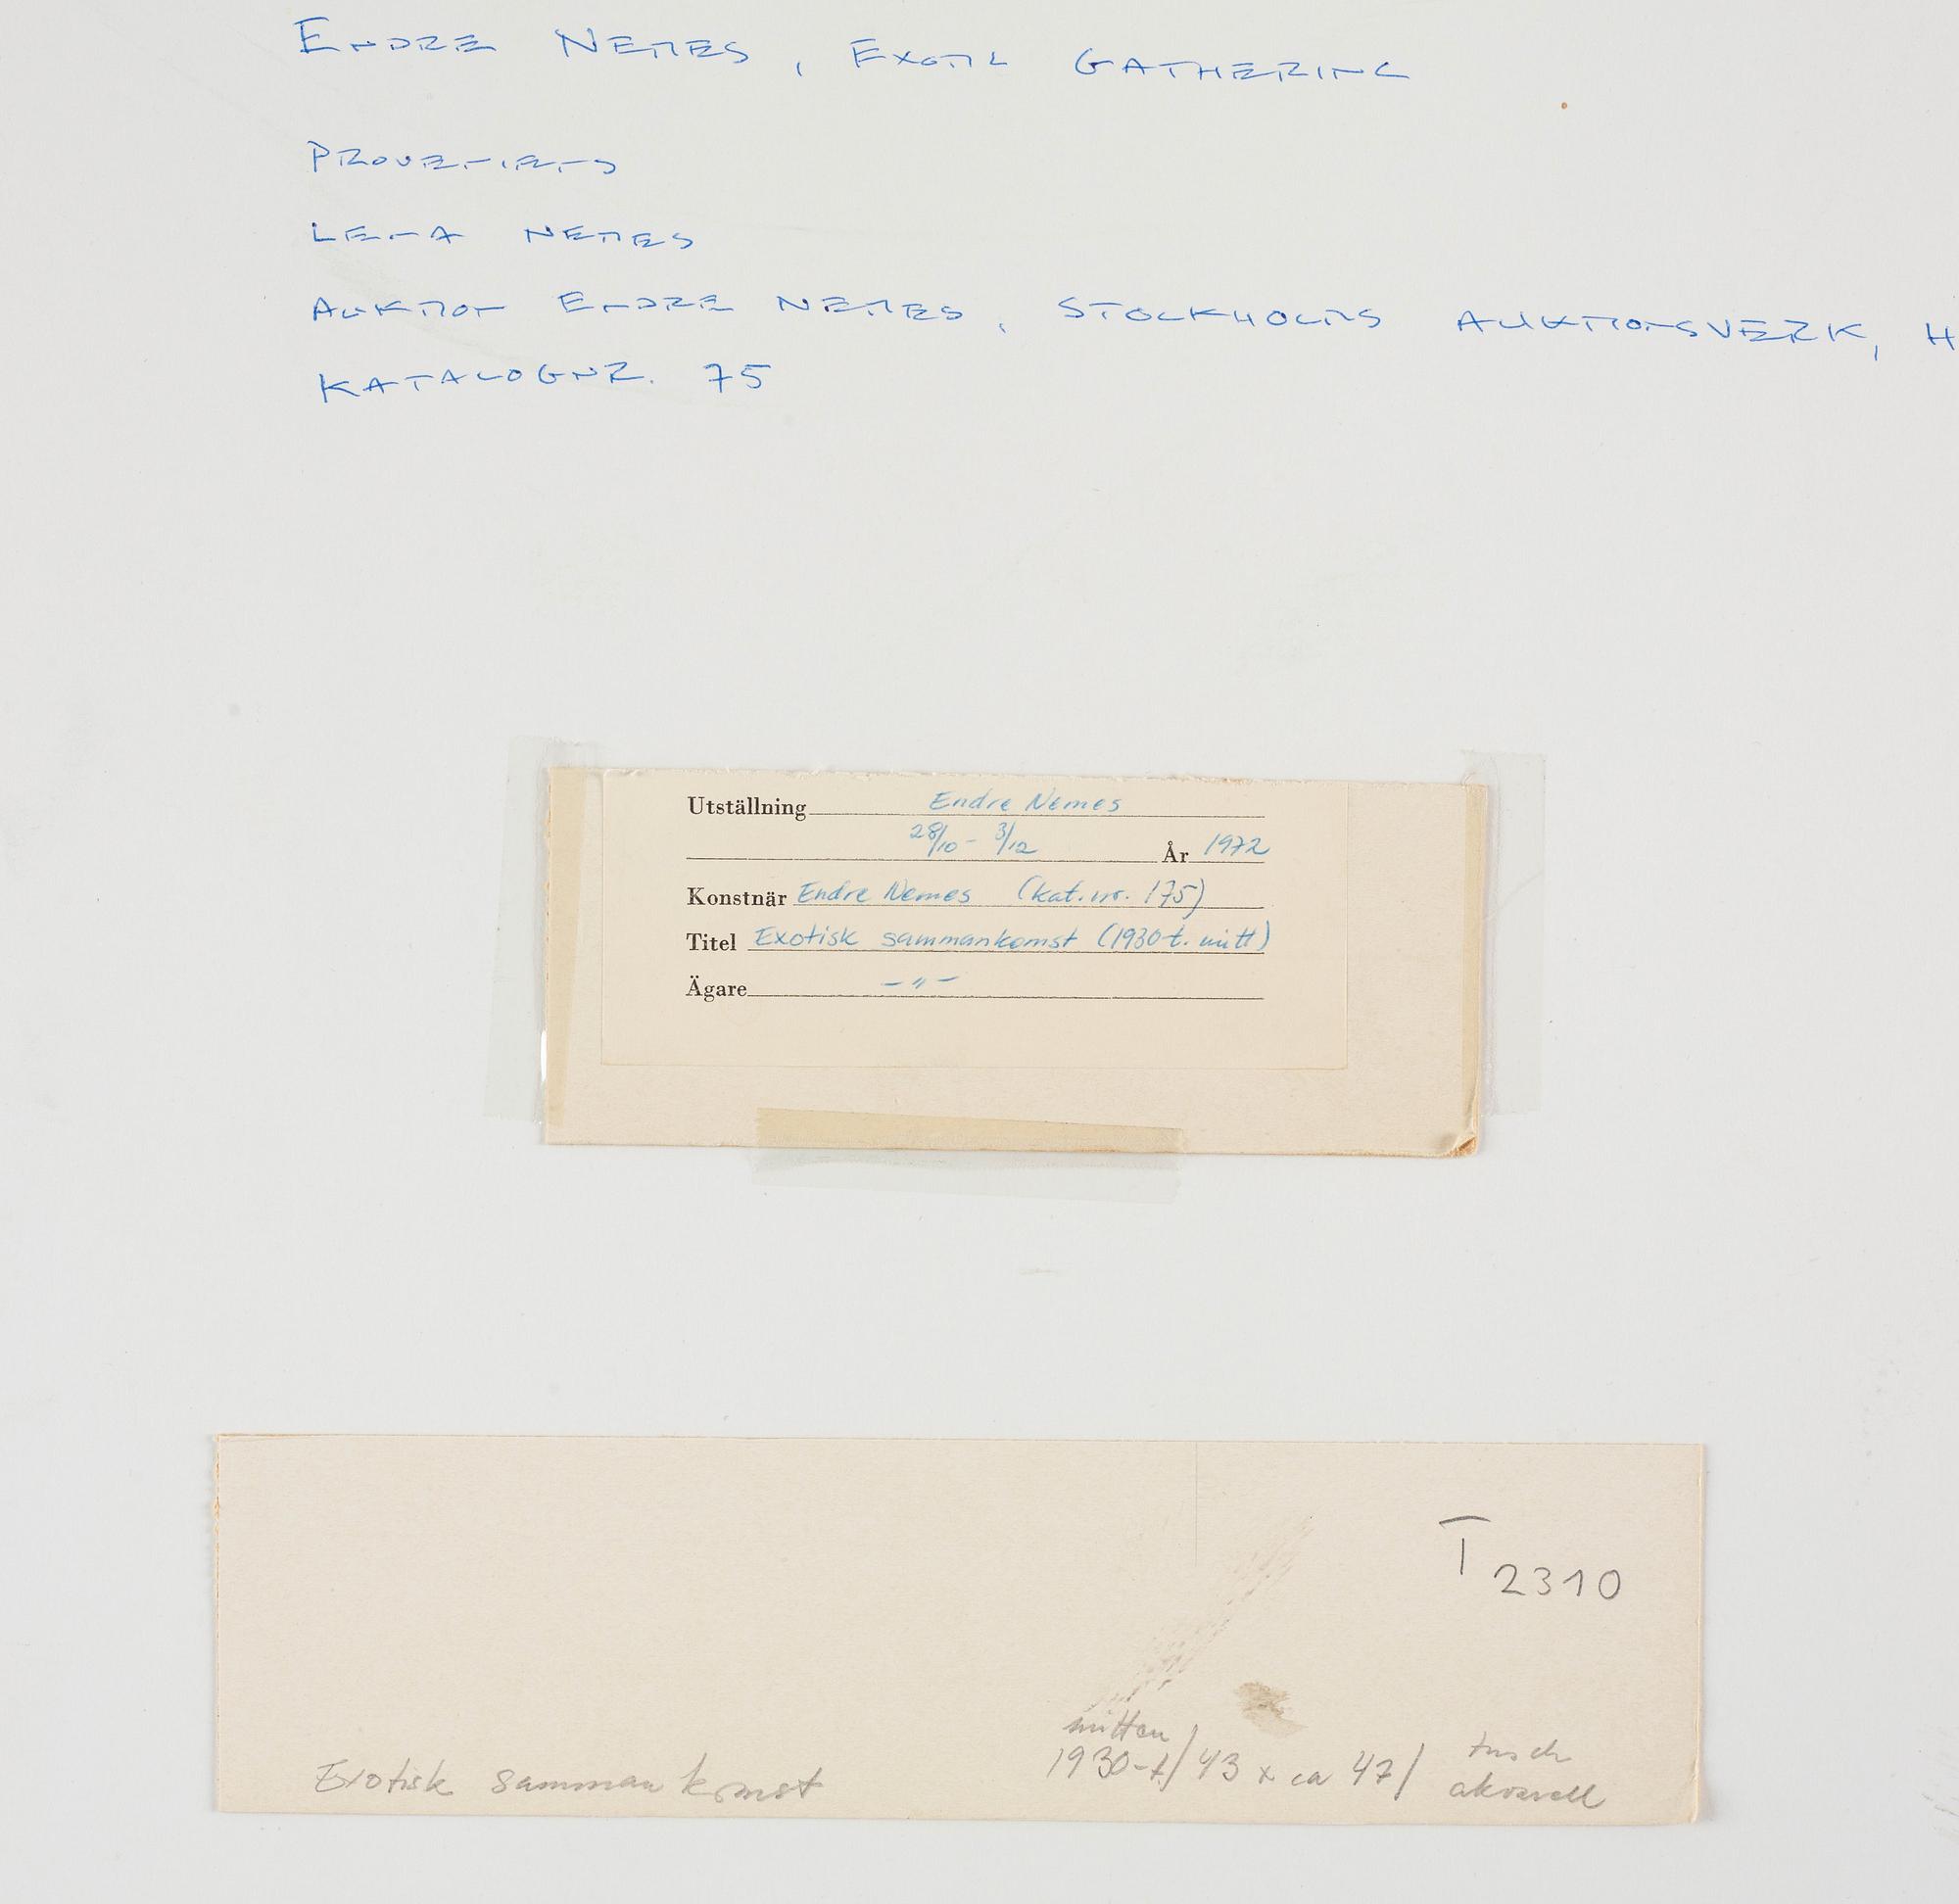 ENDRE NEMES, EXOTIC GATHERING
PROVENIENS
LENA NEMES
AUKTION ENDRE NEMES, STOCKHOLMS AUKTIONSVERK, H
KATALOGNR. 75
Utställning Endre Nemes
28/10 - 3/12 År 1972
Konstnär Endre Nemes (kat. nr. 175)
Titel Exotisk sammankomst (1930-t. mitt)
Ägare -〃-
T 2310
mitten
1930-t/ 43 x ca 47/ tusch
Exotisk sammankomst akvarell